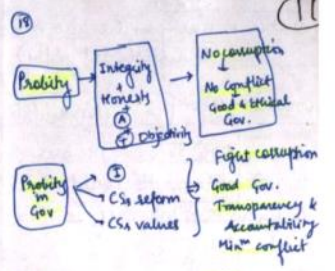 18
Probity
Integrity
+
Honesty
+
A
+
T Objectivity
No corruption
No Conflict
Good & Ethical
Gov.
Probity
in
Gov
I
CSs reform
CSs values
Fight corruption
Good Gov.
Transparency &
Accountability
Minᵐ conflict